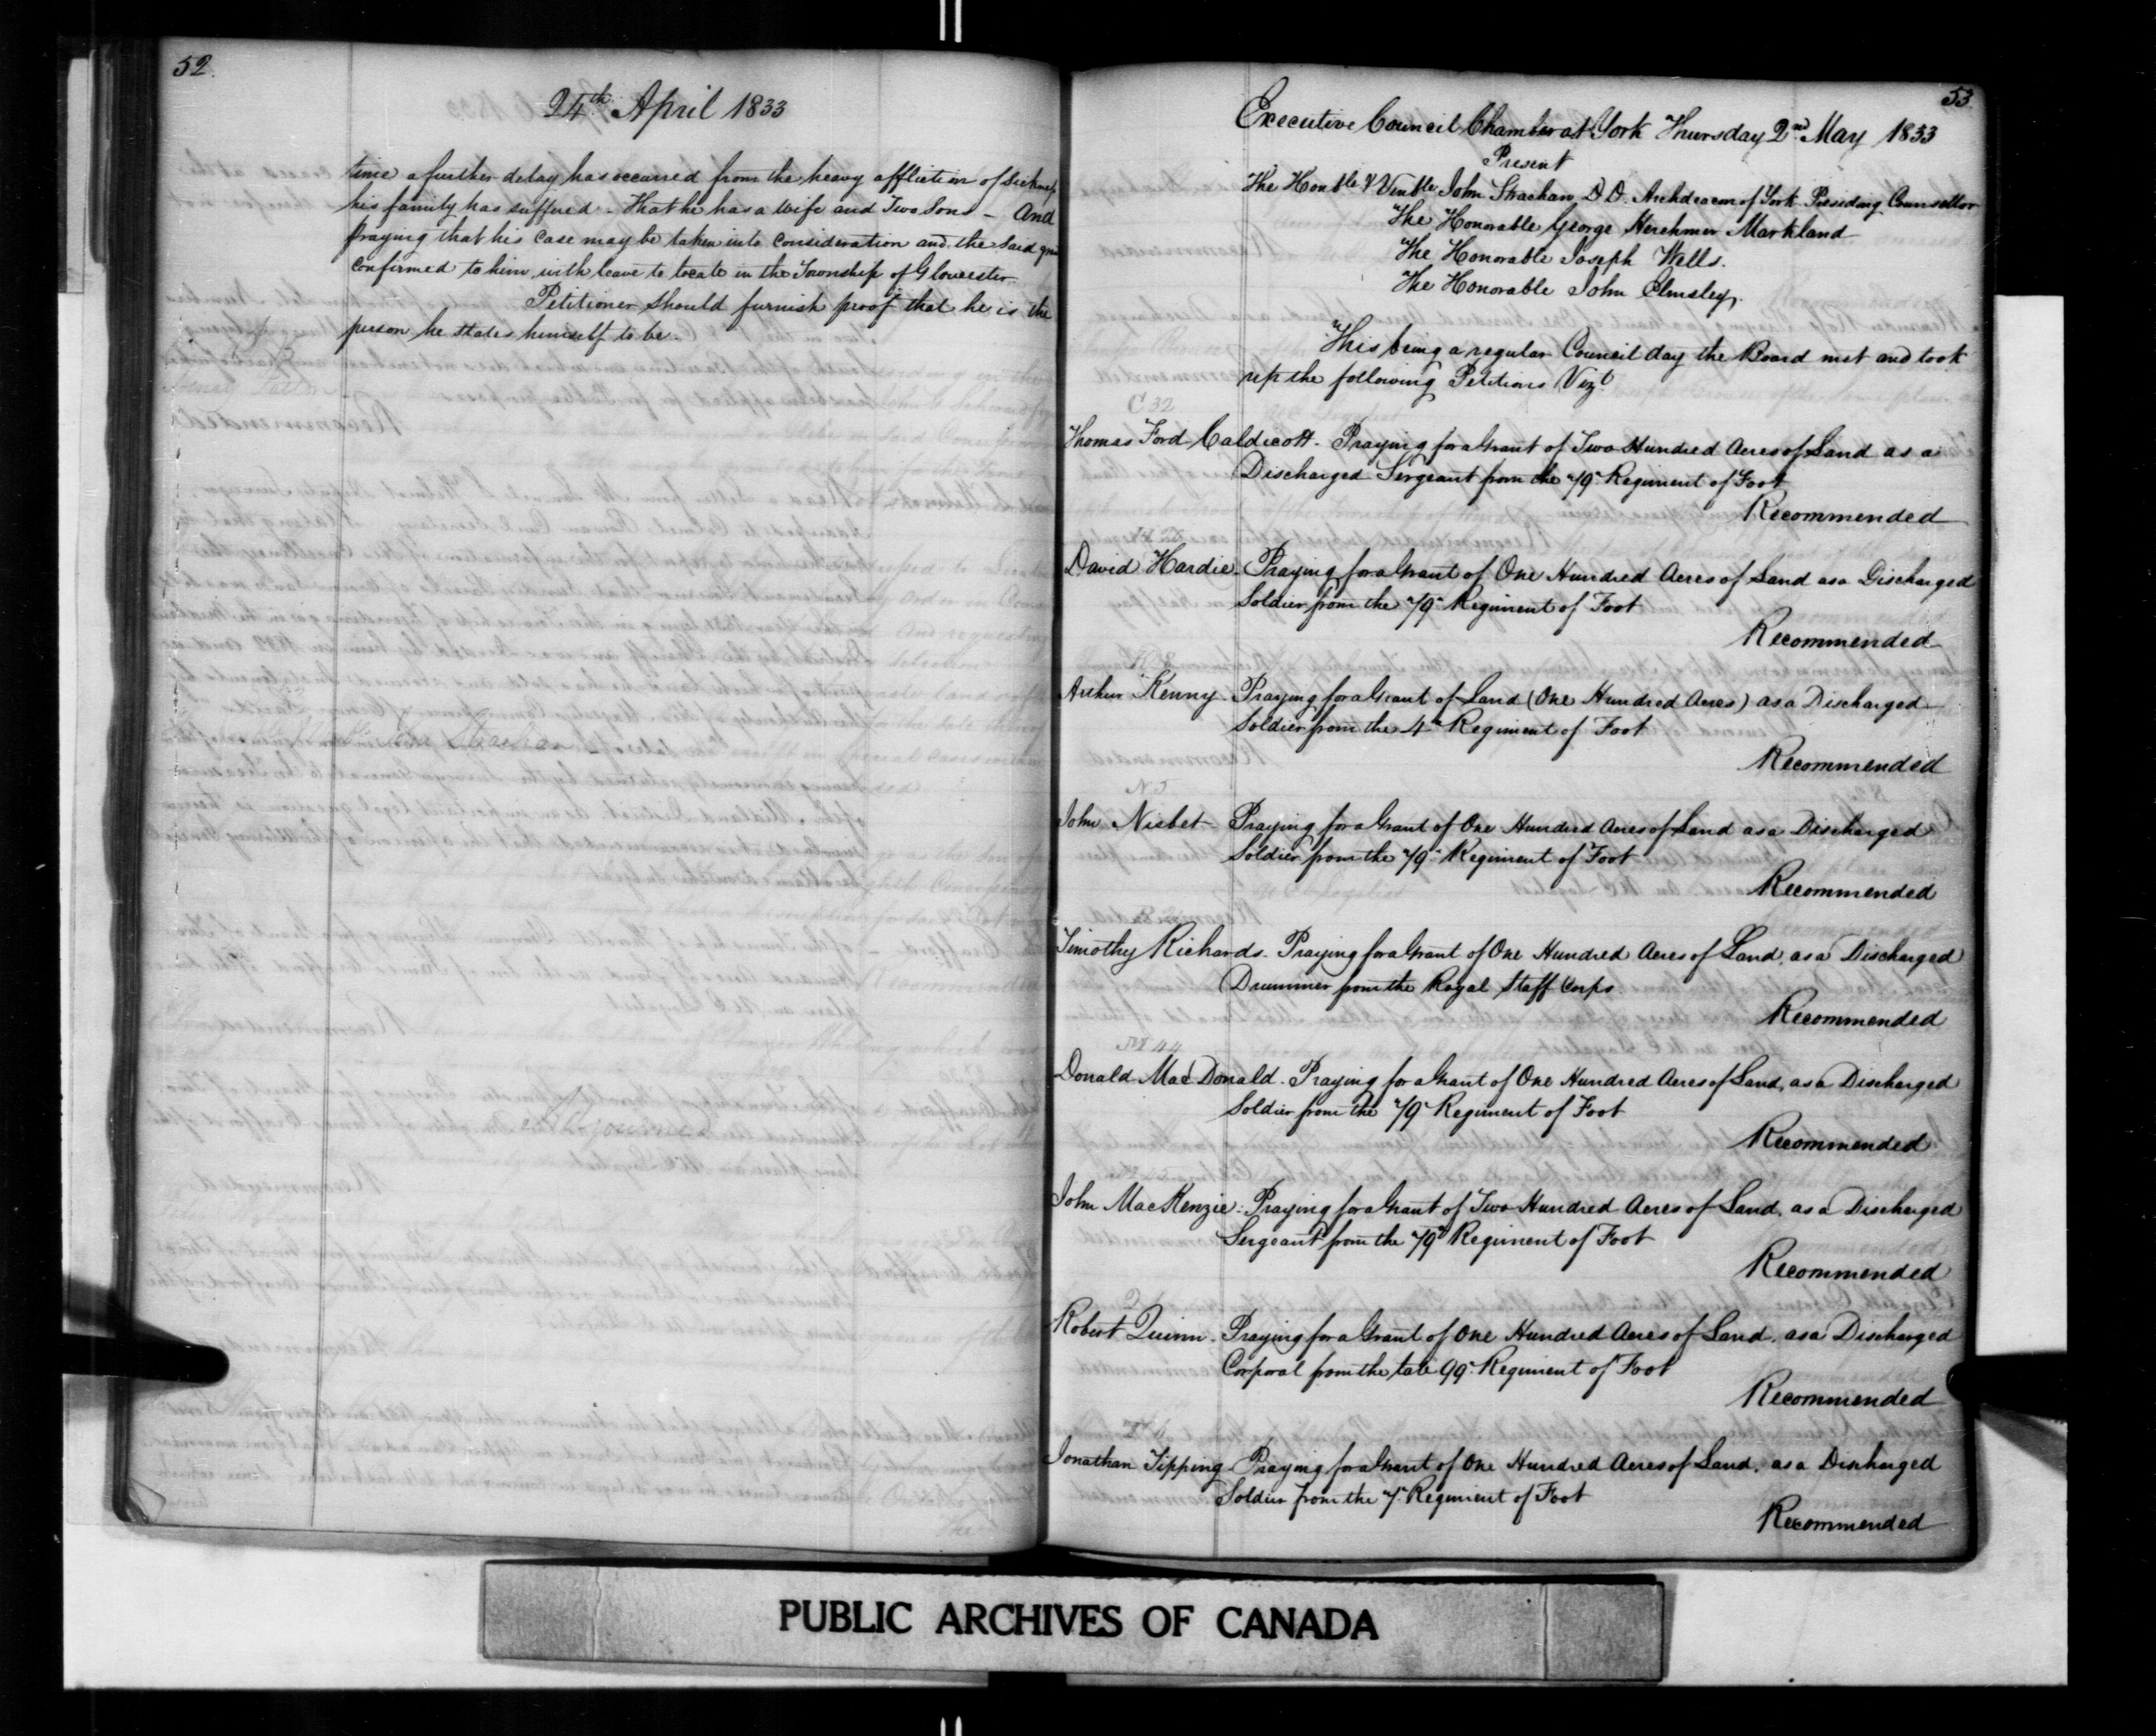 52.
24th April 1833
time a further delay has occurred from the heavy affliction of Sickness
his family has suffered - That he has a Wife and Two Sons - And
praying that his Case may be taken into Consideration and the Said
confirmed to him with leave to locate in the Township of Gloucester.
Petitioner should furnish proof that he is the
person he states himself to be.
53
Executive Council Chamber at York Thursday 2nd May 1833
Present
The Honble & Venble John Strachan D.D. Archdeacon of York Presiding Counsellor
The Honorable George Herchmer Markland
The Honorable Joseph Wells.
The Honorable John Elmsley.
This being a regular Council day the Board met and took
up the following Petitions Vizt
C 32
Thomas Ford Caldicott. Praying for a Grant of Two Hundred Acres of Land as a
Discharged Sergeant from the 79th Regiment of Foot
Recommended
David Hardie. Praying for a Grant of One Hundred Acres of Land as a Discharged
Soldier from the 79th Regiment of Foot
Recommended
K 8
Arthur Kenny. Praying for a Grant of Land (One Hundred Acres) as a Discharged
Soldier from the 4th Regiment of Foot
Recommended
N 5
John Nisbet - Praying for a Grant of One Hundred Acres of Land as a Discharged
Soldier from the 79th Regiment of Foot
Recommended
Timothy Richards. Praying for a Grant of One Hundred Acres of Land, as a Discharged
Drummer from the Royal Staff Corps.
Recommended
M 44
Donald MacDonald. Praying for a Grant of One Hundred Acres of Land, as a Discharged
Soldier from the 79th Regiment of Foot
Recommended
M 45
John MacKenzie. Praying for a Grant of Two Hundred Acres of Land, as a Discharged
Sergeant from the 79th Regiment of Foot
Recommended
Robert Quinn. Praying for a Grant of One Hundred Acres of Land, as a Discharged
Corporal from the late 99th Regiment of Foot
Recommended
T 6
Jonathan Tipping Praying for a Grant of One Hundred Acres of Land, as a Discharged
Soldier from the 7th Regiment of Foot
Recommended
PUBLIC ARCHIVES OF CANADA